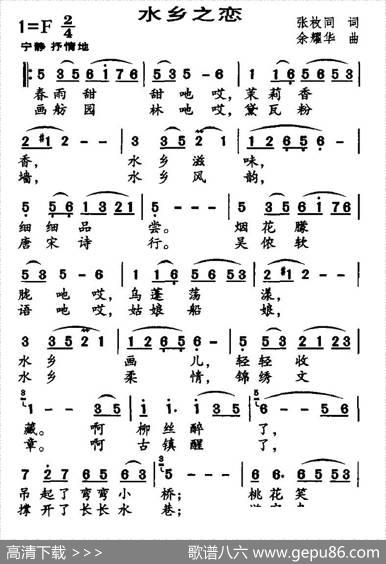 水乡之恋
1=F 2/4
宁静 抒情地
张枚同 词
余耀华 曲
5 3 5 6 i 7 6 5 3 5 - 6 1 1 6 5 6 5
春雨甜 甜吔哎，茉莉香
画舫园 林吔哎，黛瓦粉
2 #1 2 - 3 3 5 2 1 1 2 6 5 6 5 - -
香， 水乡滋 味，
墙， 水乡风 韵，
5 5 6 5 1 3 2 1 5 - - - 5 3 5 6 i 7 6
细细品 尝。 烟花朦
唐宋诗 行。 吴侬软
5 3 5 - 6 1 1 6 5 6 5 2 #1 2 -
胧吔哎，乌蓬荡 漾，
语吔哎，姑娘船 娘，
水乡 画 儿，轻轻收
水乡 柔 情，锦绣文
藏。 啊 柳丝醉 了，
章。 啊 古镇醒 了，
吊起了弯弯小 桥； 桃花笑
撑开了长长水 巷；
高清下载 >>>
歌谱八六 www.gepu86.com